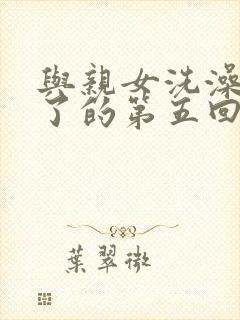 與親女洗澡
了的第五回
葉翠微